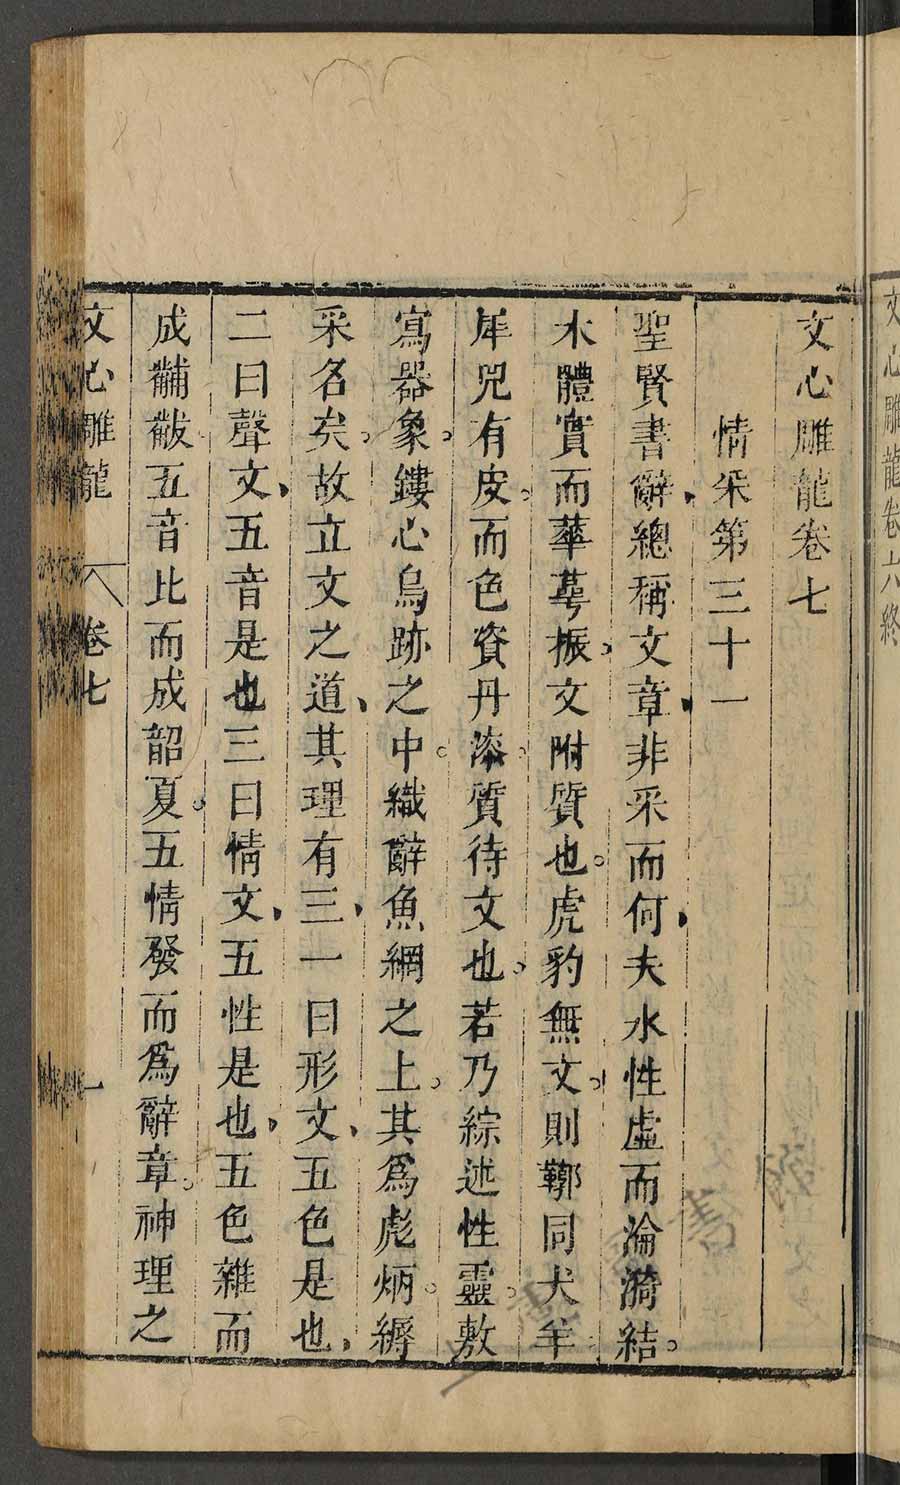 文心雕龍卷六終
文心雕龍卷七
情采第三十一
聖賢書辭總稱文章非采而何夫水性虛而淪漪結
木體實而華萼振文附質也虎豹無文則鞹同犬羊
犀兕有皮而色資丹漆質待文也若乃綜述性靈敷
寫器象鏤心鳥跡之中織辭魚網之上其爲彪炳縟
采名矣故立文之道其理有三一曰形文五色是也
二曰聲文五音是也三曰情文五性是也五色雜而
成黼黻五音比而成韶夏五情發而爲辭章神理之
文心雕龍 卷七 一